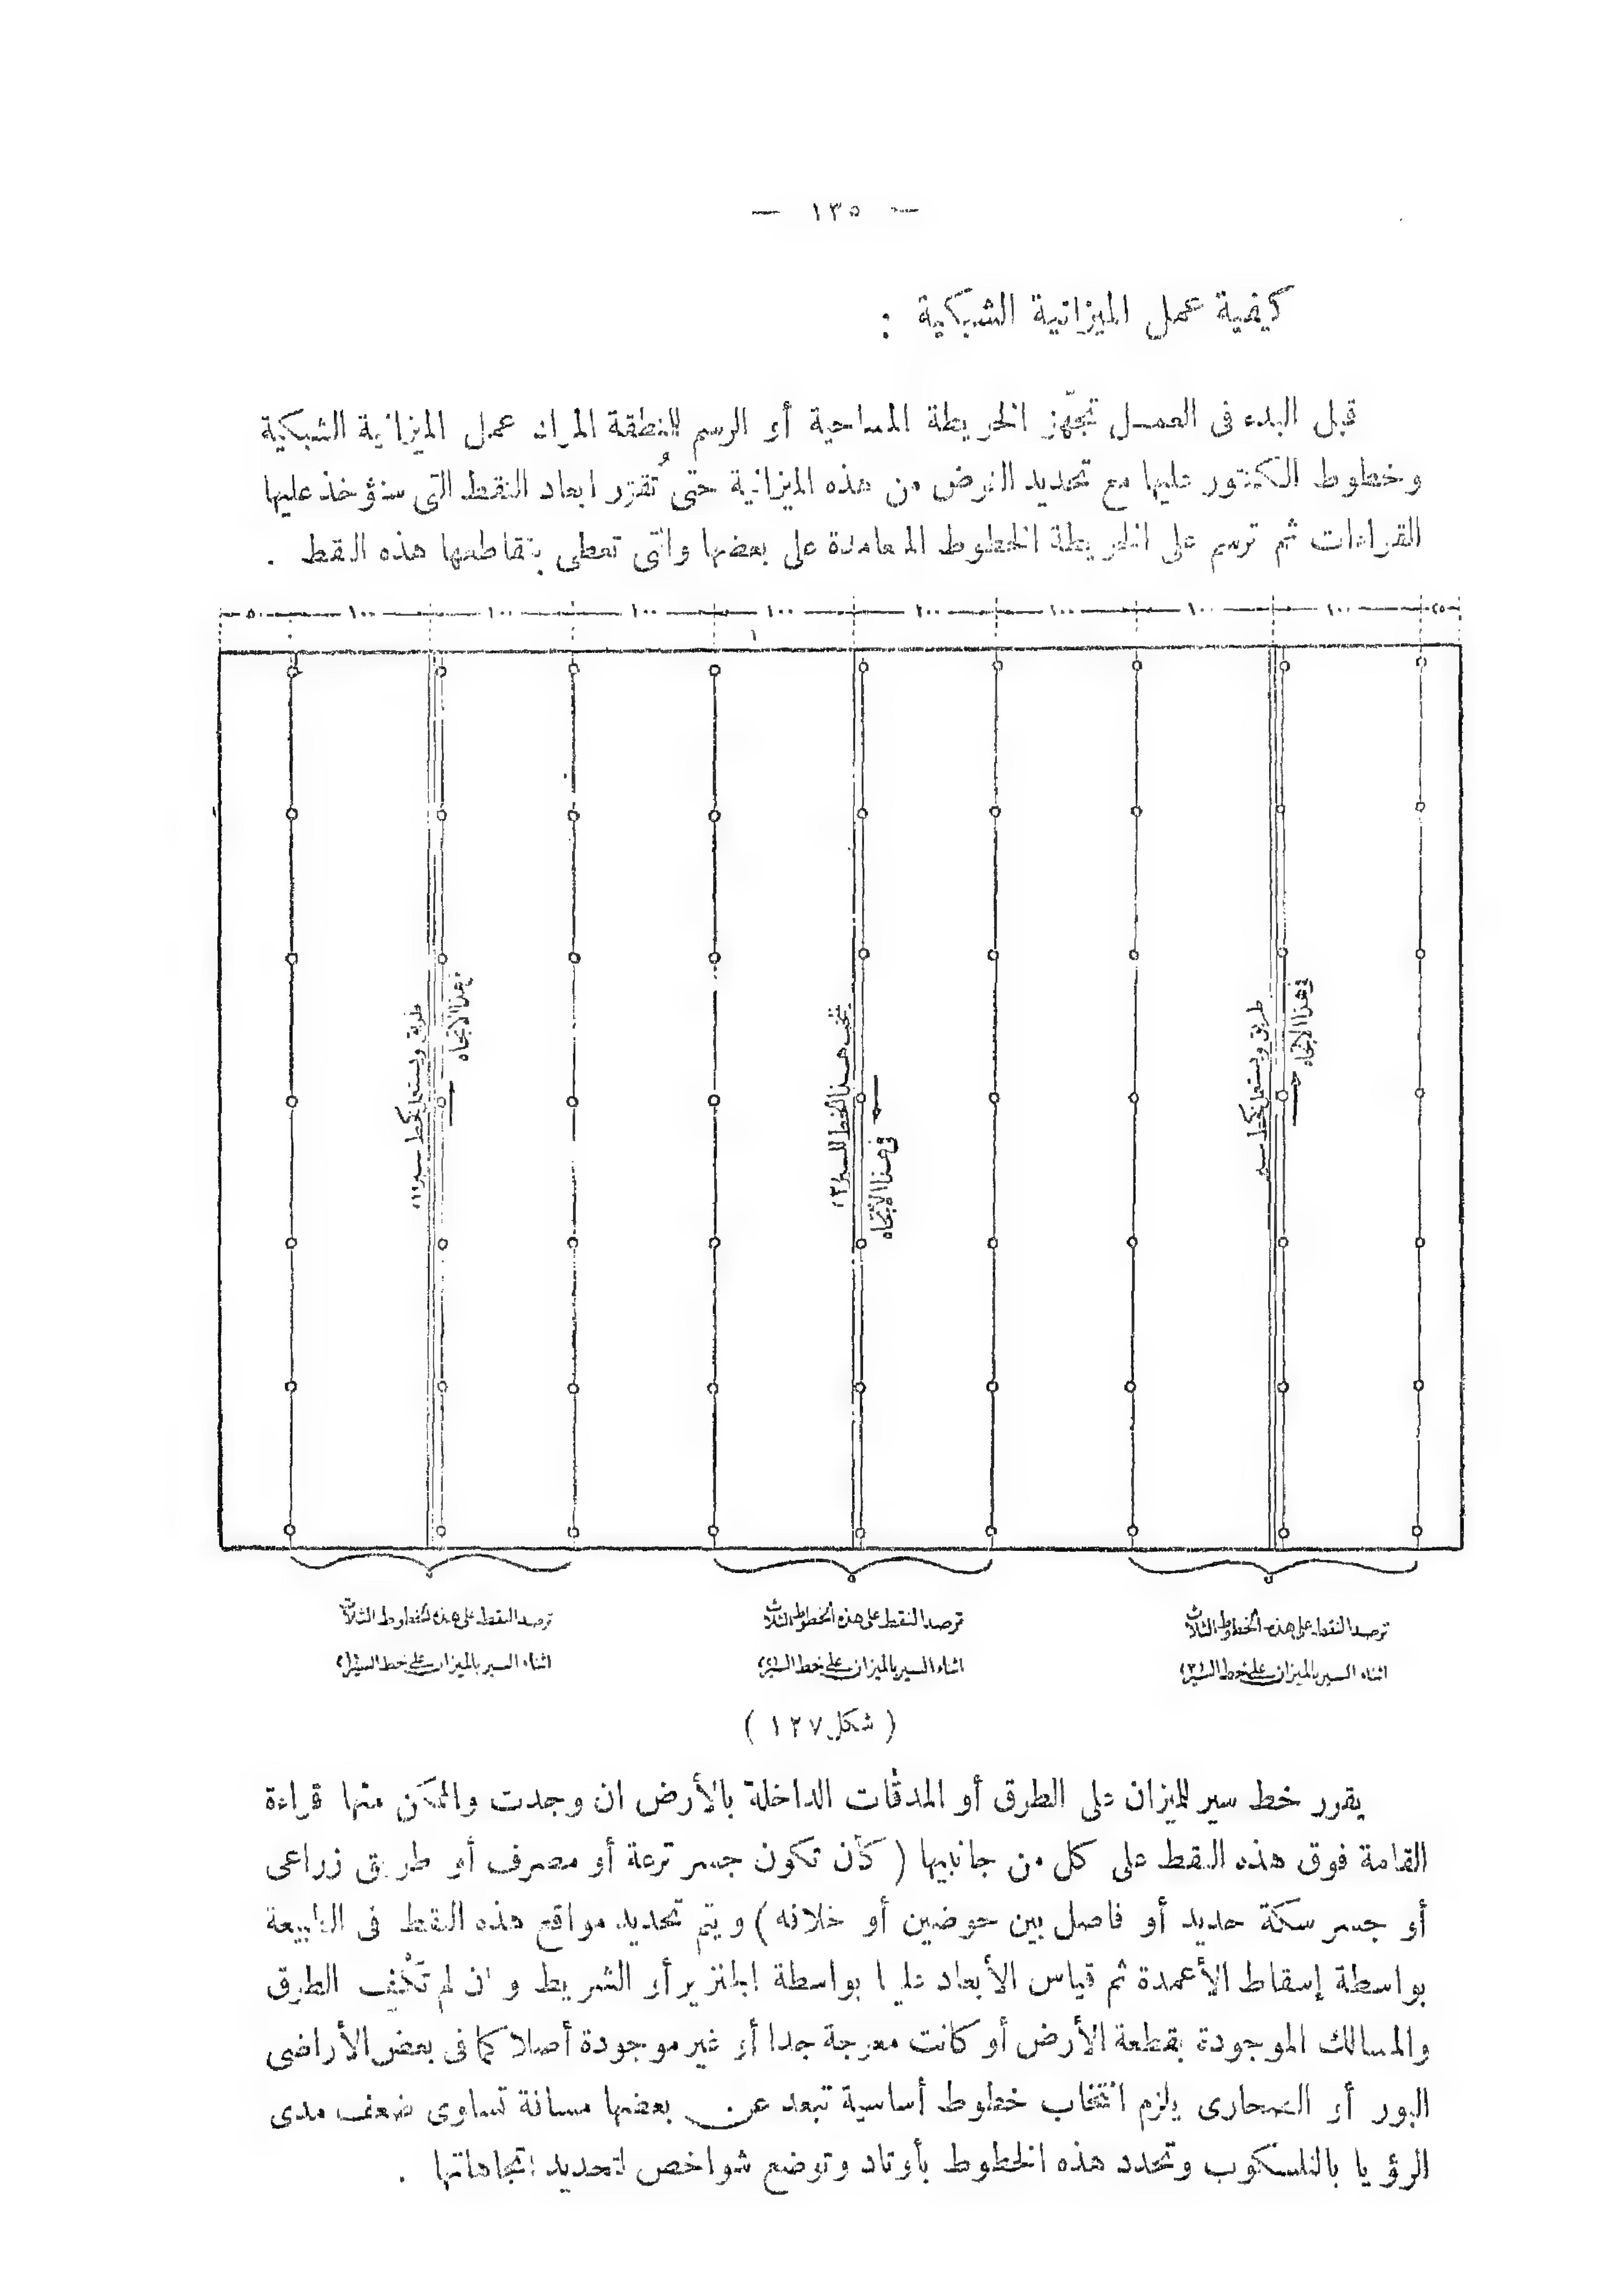 — ١٣٥ —
كيفية عمل الميزانية الشبكية :
قبل البدء فى العمل تجهّز الخريطة المساحية أو الرسم للمنطقة المراد عمل الميزانية الشبكية
وخطوط الكنتور عليها مع تحديد الغرض من هذه الميزانية حتى تُقرّر ابعاد النقط التى ستؤخذ عليها
القراءات ثم ترسم على الخريطة الخطوط المتعامدة على بعضها والتى تعطى بتقاطعها هذه النقط .
٥٠ ١٠٠ ١٠٠ ١٠٠ ١٠٠ ١٠٠ ١٠٠ ١٠٠ ١٠٠ ٢٥
طريق ويستعمل كخط سير (١)
فى هذا الاتجاه
ينتخب هذا الخط للسير (٢)
فى هذا الاتجاه
طريق ويستعمل كخط سير
فى هذا الاتجاه
ترصد النقط على هذه الخطوط الثلاث
اثناء السير بالميزان على خط السير (١)
ترصد النقط على هذه الخطوط الثلاث
اثناء السير بالميزان على خط السير (٢)
ترصد النقط على هذه الخطوط الثلاث
اثناء السير بالميزان على خط السير (٣)
( شكل ١٢٧ )
يقرر خط سير للميزان على الطرق أو المدقات الداخلة بالأرض ان وجدت والممكن منها قراءة
القامة فوق هذه النقط على كل من جانبيها ( كأن تكون جسر ترعة أو مصرف أو طريق زراعى
أو جسر سكة حديد أو فاصل بين حوضين أو خلافه ) ويتم تحديد مواقع هذه النقط فى الطبيعة
بواسطة إسقاط الأعمدة ثم قياس الأبعاد عليها بواسطة الجنزير أو الشريط وان لم تكْفِ الطرق
والمسالك الموجودة بقطعة الأرض أو كانت معرجة جدا أو غير موجودة أصلا كما فى بعض الأراضى
البور أو الصحارى يلزم انتخاب خطوط أساسية تبعد عن بعضها مسافة تساوى ضعف مدى
الرؤيا بالتلسكوب وتحدد هذه الخطوط بأوتاد وتوضع شواخص لتحديد اتجاهاتها .